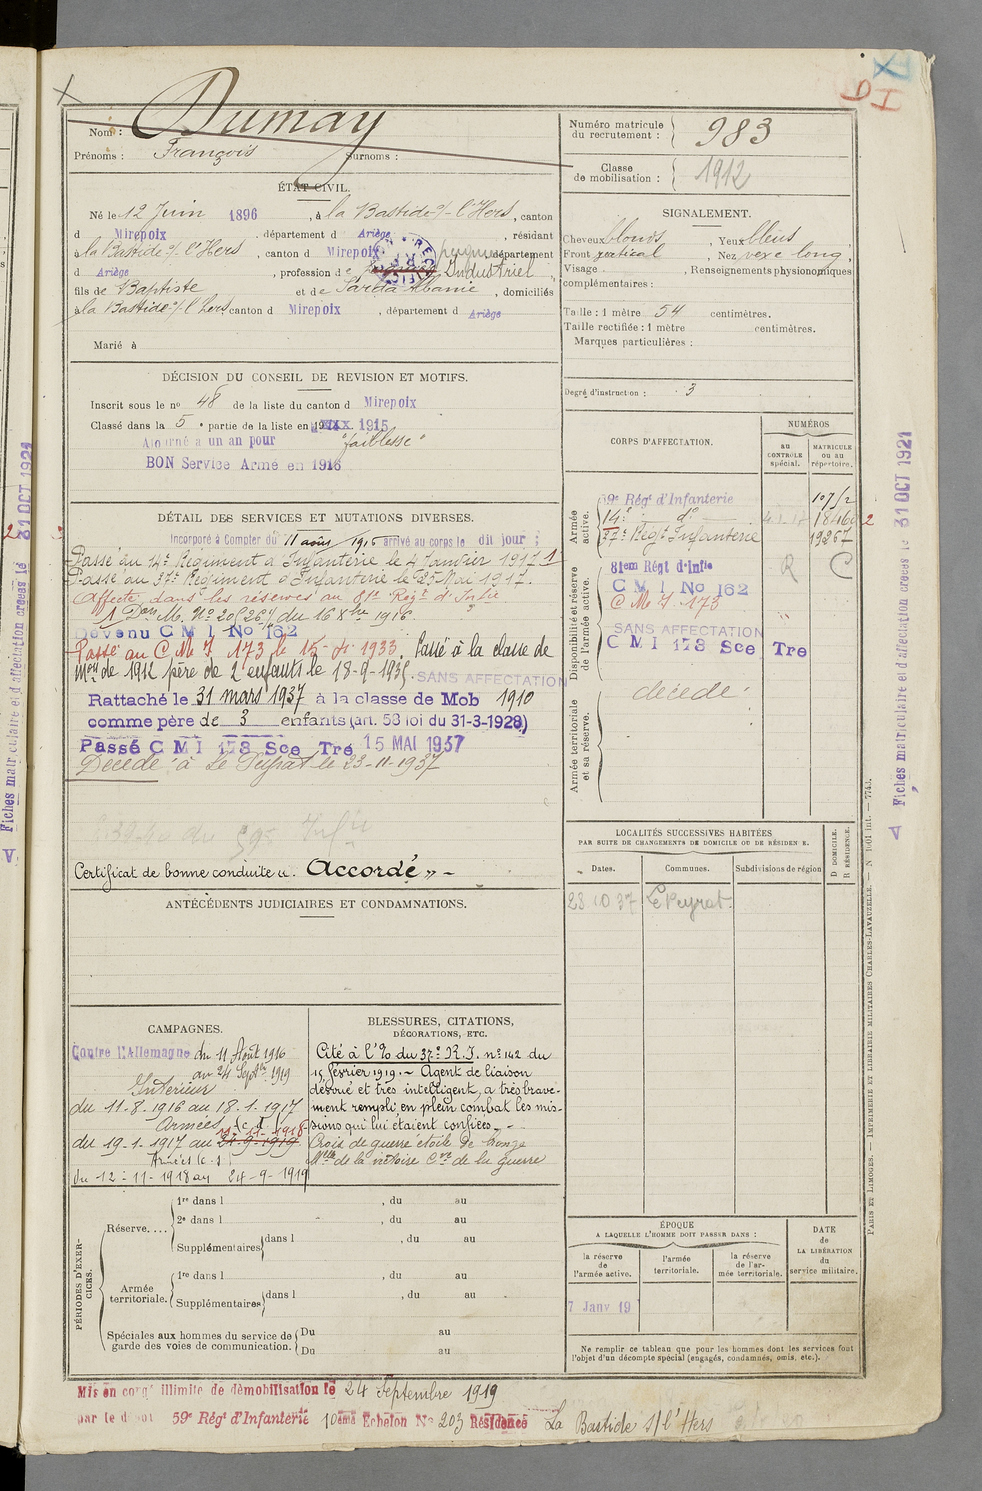 Nom : Dumay
Prénoms : François Surnoms :
ÉTAT CIVIL.
Né le 12 Juin 1896, à la Bastide s/- l'Hers, canton
d Mirepoix, département d Ariège, résidant
à la Bastide s/. l'Hers, canton d Mirepoix département
d Ariège, profession de Industriel
fils de Baptiste et de Sarda Albanie, domiciliés
à la Bastide s/ l'hers canton d Mirepoix, département d Ariège
Marié à
DÉCISION DU CONSEIL DE REVISION ET MOTIFS.
Inscrit sous le nº 48 de la liste du canton d Mirepoix
Classé dans la 5e partie de la liste en 1915
Ajourné a un an pour "faiblesse"
BON Service Armé en 1916
DÉTAIL DES SERVICES ET MUTATIONS DIVERSES.
Incorporé à Compter du 11 août 1916 arrivé au corps le dit jour ;
Passé au 14e Régiment d'Infanterie le 4 Janvier 1917
Passé au 37e Régiment d'Infanterie le 25 Mai 1917.
Affecté dans les réserves au 81e Régt d'Infie
Don M. No 20 (26) du 16 Xbre 1916.
Devenu C M I No 162
Passé au C M I 173 le 15- 1933. Passé à la classe de
Mon de 1912 père de 2 enfants le 18-9-1935. SANS AFFECTATION
Rattaché le 31 mars 1937 à la classe de Mob 1910
comme père de 3 enfants (art. 58 loi du 31-3-1928)
Passé C M I 173 Sce Tré 15 MAI 1937
Décédé à Le Peyrat le 23-11-1937
Certificat de bonne conduite "Accordé" -
ANTÉCÉDENTS JUDICIAIRES ET CONDAMNATIONS.
CAMPAGNES.
Contre l'Allemagne du 11 Août 1916
au 24 Septbre 1919
Intérieur
du 11-8-1916 au 18-1-1917
Armées
11-11-1918
du 19-1-1917 au 24-9-1919
Armées
du 12-11-1918 au 24-9-1919
BLESSURES, CITATIONS,
DÉCORATIONS, ETC.
Cité à l'% du 37e R.I. nº 142 du
15 février 1919. - Agent de liaison
dévoué et très intelligent, a très brave-
ment rempli en plein combat les mis-
sions qui lui étaient confiées. -
Croix de guerre étoile de bronze
Mlle de la victoire Cve de la guerre
PÉRIODES D'EXERCICES.
Réserve....
1re dans l , du au
2e dans l , du au
Supplémentaires dans l , du au
Armée territoriale.
1re dans l , du au
Supplémentaires dans l , du au
Spéciales aux hommes du service de garde des voies de communication.
Du au
Du au
Mis en congé illimité de démobilisation le 24 Septembre 1919
par le dépôt 59e Régt d'Infanterie 10ème Echelon No 203 Résidence La Bastide s/ l'Hers
Numéro matricule du recrutement : 983
Classe de mobilisation : 1912
SIGNALEMENT.
Cheveux blonds, Yeux bleus
Front vertical, Nez vexe long,
Visage , Renseignements physionomiques
complémentaires :
Taille : 1 mètre 54 centimètres.
Taille rectifiée : 1 mètre centimètres.
Marques particulières :
Degré d'instruction : 3
CORPS D'AFFECTATION.
NUMÉROS
au CONTRÔLE spécial.
MATRICULE ou au répertoire.
Armée active.
59e Régt d'Infanterie
14e do
37e Régt Infanterie 19267
Disponibilité et réserve de l'armée active.
81em Régt d'Infie R C
C M I No 162
C M I 173
SANS AFFECTATION
C M I 173 Sce Tre
Armée territoriale et sa réserve.
décédé
LOCALITÉS SUCCESSIVES HABITÉES
PAR SUITE DE CHANGEMENTS DE DOMICILE OU DE RÉSIDENCE.
Dates. Communes. Subdivisions de région
D DOMICILE. R RÉSIDENCE.
23 10 37 Le Peyrat.
ÉPOQUE
A LAQUELLE L'HOMME DOIT PASSER DANS :
la réserve de l'armée active.
l'armée territoriale.
la réserve de l'armée territoriale.
DATE de LA LIBÉRATION du service militaire.
7 Janv 19
Ne remplir ce tableau que pour les hommes dont les services font
l'objet d'un décompte spécial (engagés, condamnés, omis, etc.).
PARIS ET LIMOGES. — IMPRIMERIE ET LIBRAIRIE MILITAIRES CHARLES-LAVAUZELLE. — N 1001 int. — 7743.
Fiches matriculaire et d'affectation créées le 31 OCT 1921
Fiches matriculaire et d'affectation créées le 31 OCT 1921